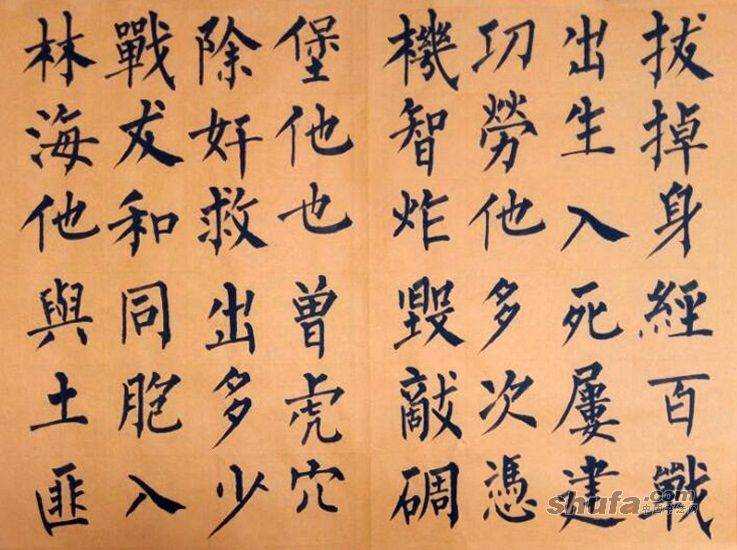 拔掉身經百戰
出生入死屢建
功勞他多次憑
機智炸毀敵碉
堡他也曾虎穴
除奸救出多少
戰友和同胞入
林海他與土匪
shufa.com
中国书法网